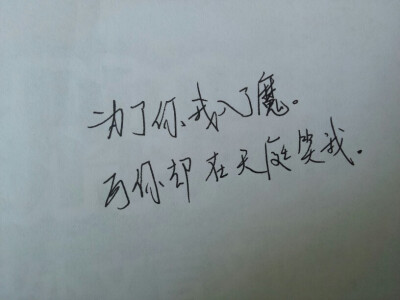 为了你、我入了魔。
可你却在天庭笑我。